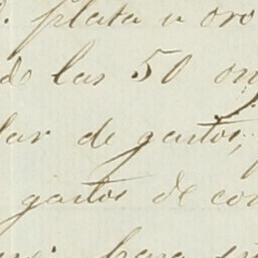 plata u oro
de las 50 on
lar de gastos,
gastos de con
para